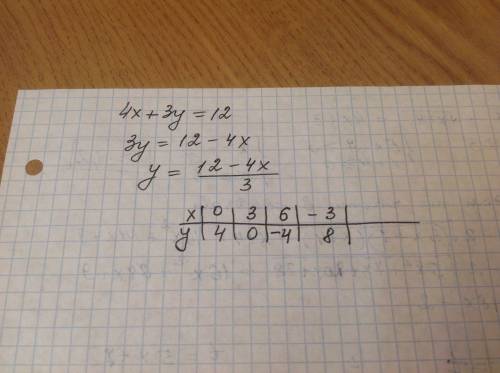 4x + 3y = 12
3y = 12 - 4x
y = (12 - 4x)/3
x | 0 | 3 | 6 | -3 |
y | 4 | 0 | -4 | 8 |